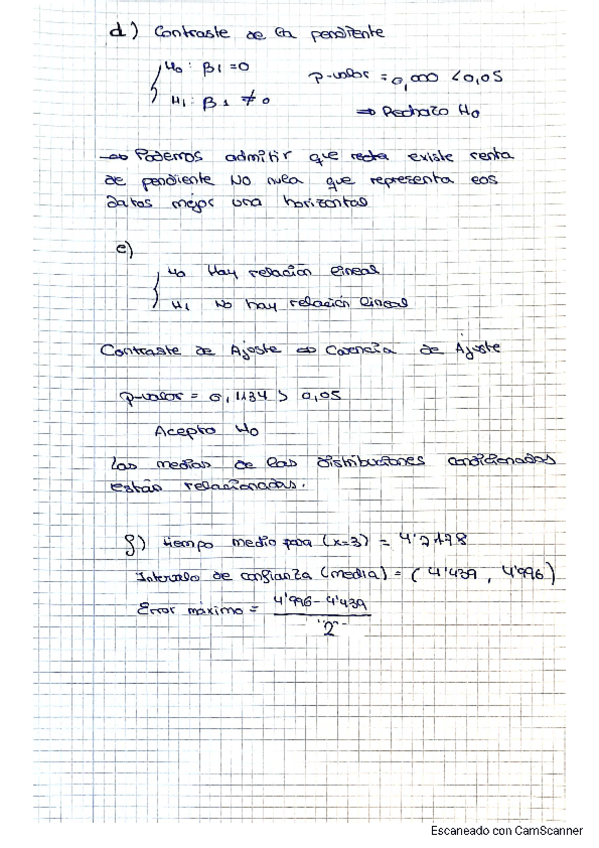 d) Contraste de la pendiente
H0 : β1 = 0 p-valor = 0,000 < 0,05
H1 : β1 ≠ 0 ⇒ Rechazo H0
⇒ Podemos admitir que recta existe renta
de pendiente NO nula que representa los
datos mejor una horizontal
e)
H0 Hay relación lineal
H1 No hay relación lineal
Contraste de Ajuste ⇒ Carencia de Ajuste
p-valor = 0,1134 > 0,05
Acepto H0
Las medias de las distribuciones condicionadas
están relacionadas.
f) tiempo medio para (x=3) = 4'7178
Intervalo de confianza (media) = (4'439, 4'996)
Error máximo = 4'996 - 4'439
2
Escaneado con CamScanner